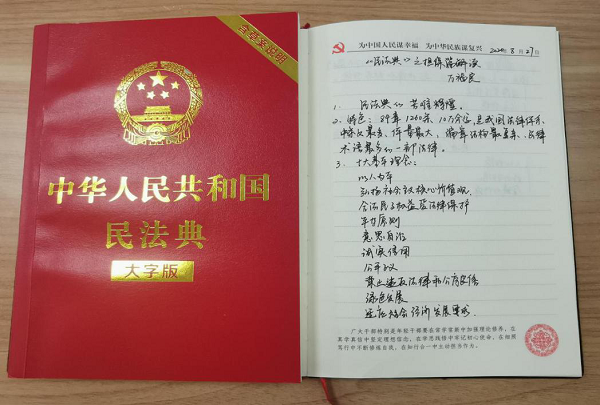 含草案说明
中华人民共和国
民法典
大字版
为中国人民谋幸福 为中华民族谋复兴
2020年8月27日
《民法典》之担保篇解读
1. 民法典的
2. 特色：84章1260条，10万余字，是我国法律体系
条文最多、体量最大、编章结构最复杂、法律
术语最多的一部法律。
3. 十大基本理念：
以人为本
弘扬社会主义核心价值观
合法民事权益受法律保护
平等原则
意思自治
诚实信用
公平正义
禁止违反法律和公序良俗
绿色发展
适应社会经济发展要求
广大干部特别是年轻干部要在常学常新中加强理论修养，在
真学真信中坚定理想信念，在学思践悟中牢记初心使命，在细照
笃行中不断修炼自我，在知行合一中主动担当作为。